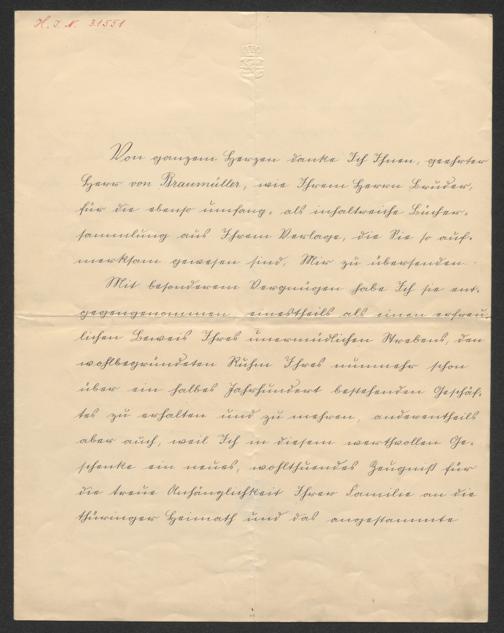 H. I. N. 31551
Von ganzem Herzen danke Ich Ihnen, geehrter
Herr von Braumüller, wie Ihrem Herrn Bruder,
für die ebenso umfang-, als inhaltreiche Bücher-
sammlung aus Ihrem Verlage, die Sie so auf-
merksam gewesen sind, Mir zu übersenden.
Mit besonderem Vergnügen habe Ich sie ent-
gegengenommen einestheils als einen erfreu-
lichen Beweis Ihres unermüdlichen Strebens, den
wohlbegründeten Ruhm Ihres nunmehr schon
über ein halbes Jahrhundert bestehenden Geschäf-
tes zu erhalten und zu mehren, anderentheils
aber auch, weil Ich in diesem werthvollen Ge-
schenke ein neues, wohlthuendes Zeugniß für
die treue Anhänglichkeit Ihrer Familie an die
thüringer Heimath und das angestammte